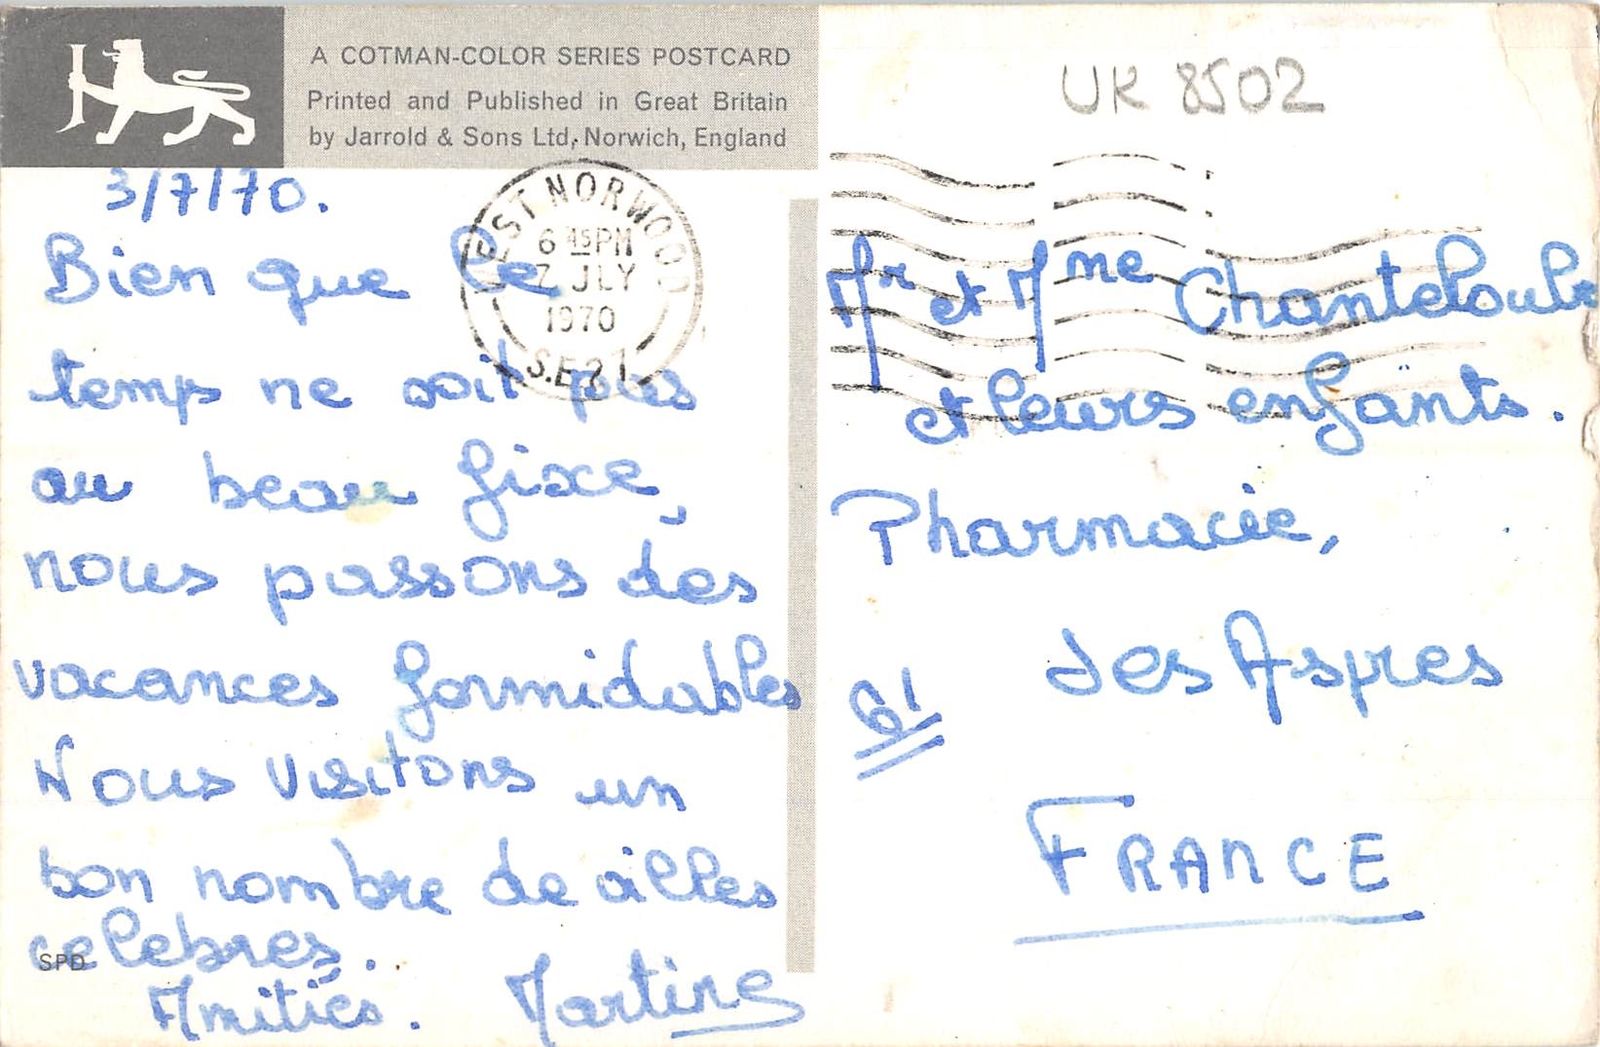 A COTMAN-COLOR SERIES POSTCARD
Printed and Published in Great Britain
by Jarrold & Sons Ltd, Norwich, England
UK 8502
WEST NORWOOD
6 45 PM
JLY
1970
S.E.27
3/7/70.
Bien que le
temps ne soit pas
au beau fixe,
nous passons des
vacances formidables
Nous visitons un
bon nombre de villes
celebres.
SPD
Amitiés. Martine
Mr et Mme Chanteloube
et leurs enfants.
Pharmacie,
des Aspres
61
FRANCE